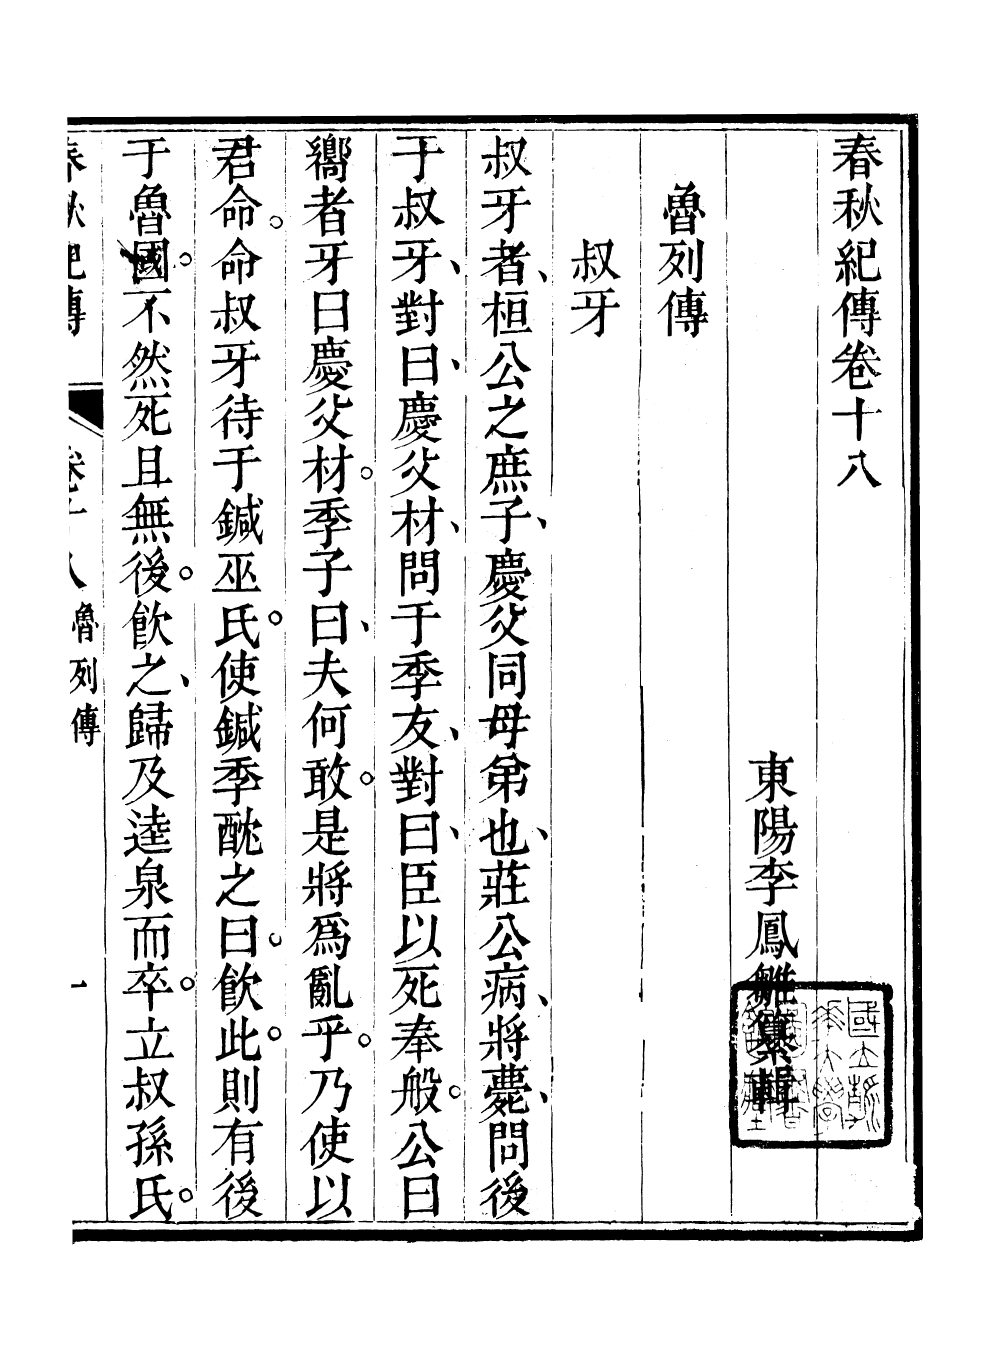 春秋紀傳卷十八
東陽李鳳雛纂輯
魯列傳
叔牙
叔牙者、桓公之庶子、慶父同母弟也、莊公病、將薨、問後
于叔牙、對曰、慶父材、問于季友、對曰、臣以死奉般。公曰
嚮者牙曰慶父材。季子曰、夫何敢。是將爲亂乎。乃使以
君命。命叔牙待于鍼巫氏。使鍼季酖之曰。飲此。則有後
于魯國。不然死且無後。飲之、歸及逵泉而卒。立叔孫氏。
春秋紀傳 卷十八 魯列傳 一